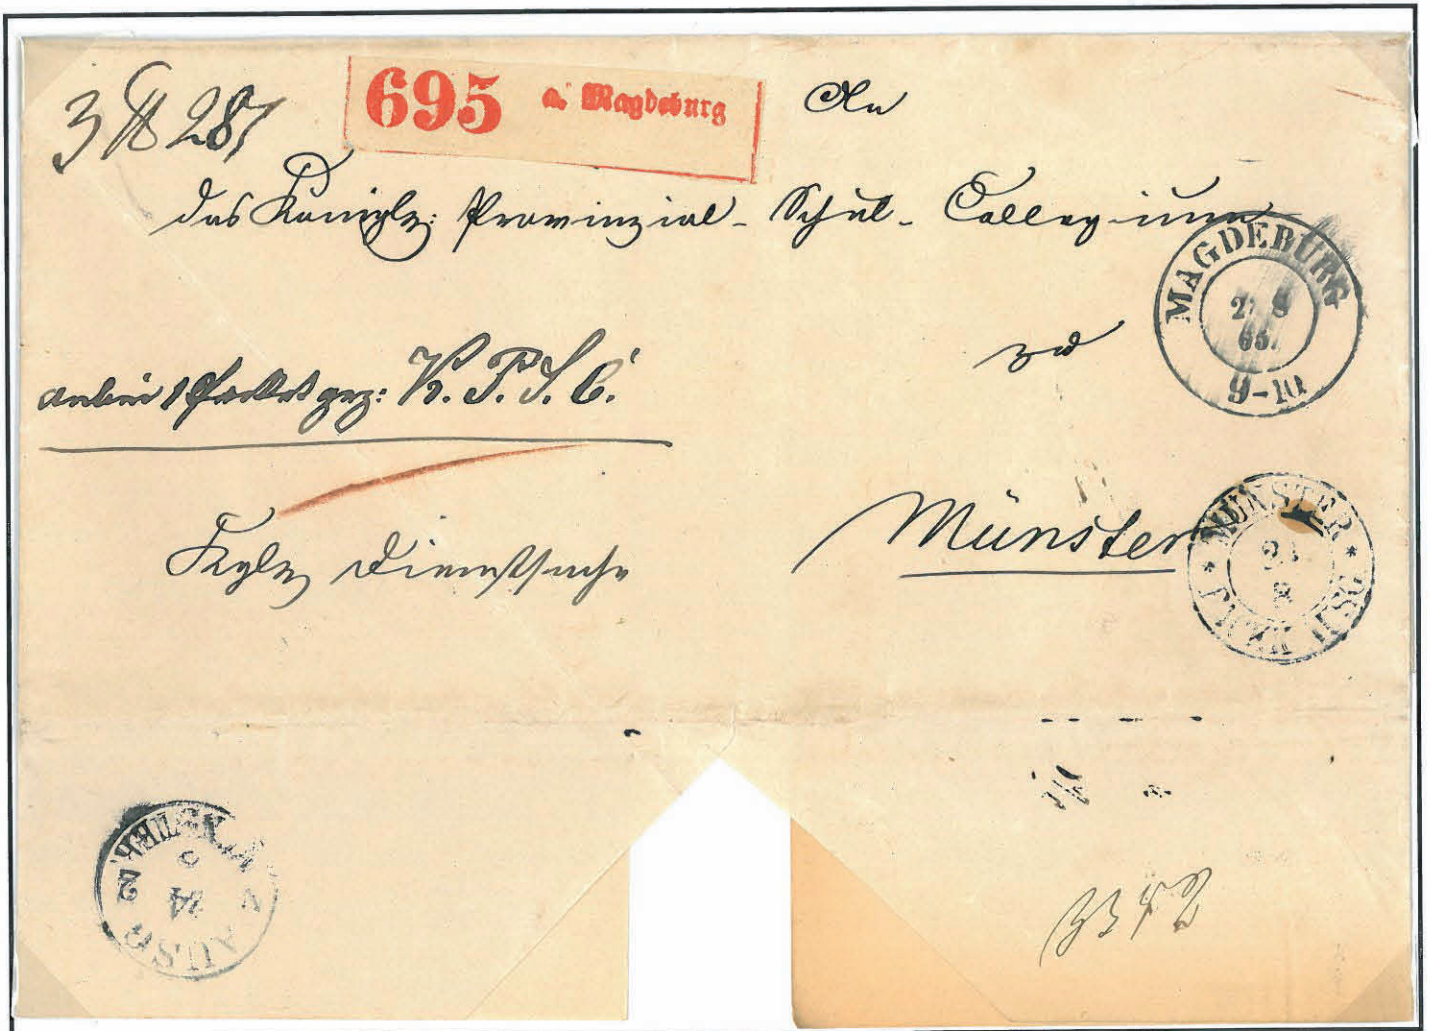 3 ℔ 28
695 a. Magdeburg
An
das Königl: Provinzial-Schul-Collegium
MAGDEBURG
65.
9-10
zu
anbei 1 Packet gez: K. P. S. C.
Münster
MÜNSTER
Kgle Dienstsache
MÜNSTER
24
AUSG 2